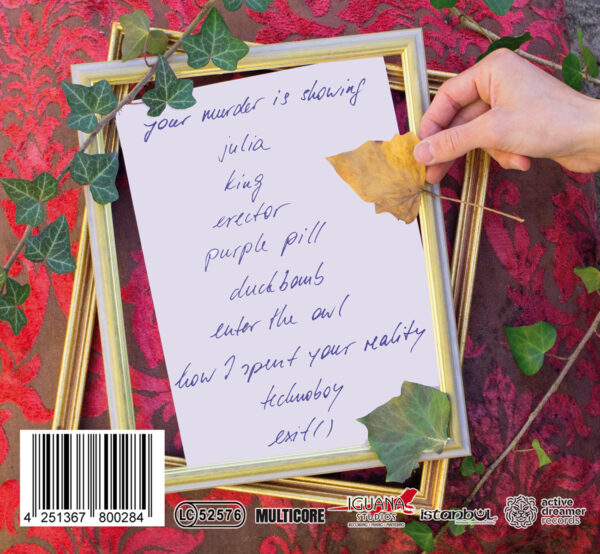 your murder is showing
julia
king
erector
purple pill
duckbomb
enter the owl
how I spent your reality
technoboy
exit()
4 251367 800284
LC 52576
MULTICORE
IGUANA
STUDIOS
istanbul
active
dreamer
records